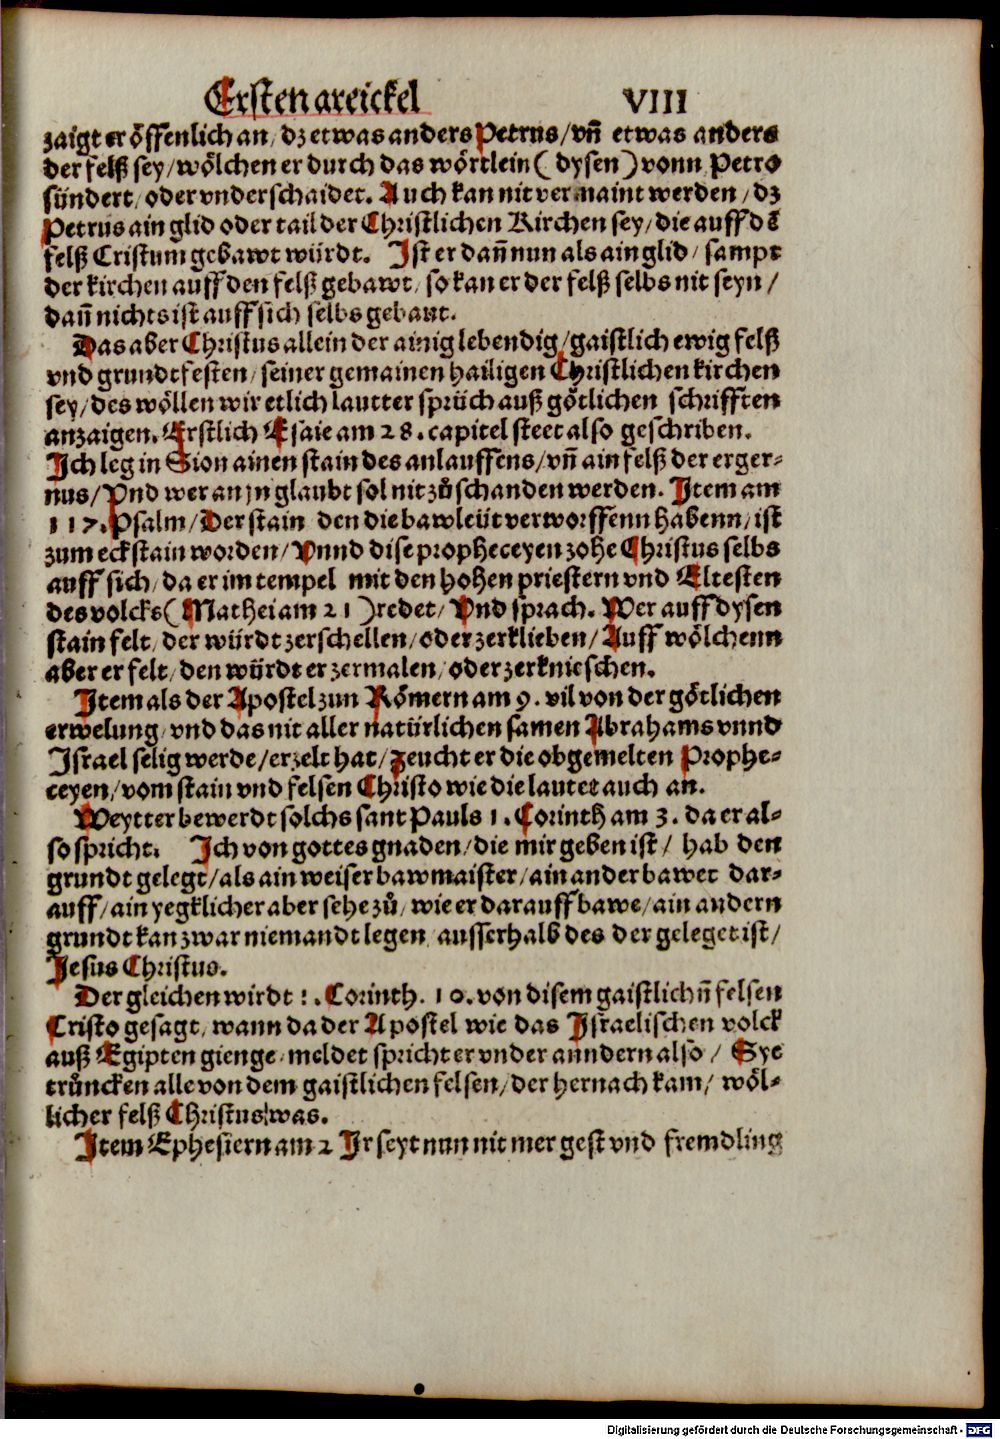 Ersten areickel VIII
zaigt er öffenlich an / dz etwas anders Petrus / vn̄ etwas anders
der felß sey / wölchen er durch das wörtlein ( dysen ) vonn Petro
sündert / oder vnderschaidet. Auch kan nit vermaint werden / dz
Petrus ain glid oder tail der Christlichen Kirchen sey / die auff dē
felß Cristum gebawt würdt. Ist er dañ nun als ain glid / sampt
der kirchen auff den felß gebawt / so kan er der felß selbs nit seyn /
dañ nichts ist auff sich selbs gebaut.
Das aber Christus allein der ainig lebendig / gaistlich ewig felß
vnd grundtfesten / seiner gemainen hailigen Christlichen kirchen
sey / des wöllen wir etlich lautter sprüch auß götlichen schrifften
anzaigen. Erstlich Esaie am 28. capitel steet also geschriben.
Ich leg in Sion ainen stain des anlauffens / vn̄ ain felß der erger⸗
nus / Vnd wer an jn glaubt sol nit zů schanden werden. Item am
117. Psalm / Der stain den die bawleüt verworffenn habenn / ist
zum eckstain worden / Vnnd dise propheceyen zohe Christus selbs
auff sich / da er im tempel mit den hohen priestern vnd Eltesten
des volcks ( Mathei am 21 ) redet / Vnd sprach. Wer auff dysen
stain felt / der würdt zerschellen / oder zerklieben / Auff wölchenn
aber er felt / den würdt er zermalen / oder zerknieschen.
Item als der Apostel zun Römern am 9. vil von der götlichen
erwelung / vnd das nit aller natürlichen samen Abrahams vnnd
Israel selig werde / erzelt hat / zeucht er die obgemelten Prophe⸗
ceyen / vom stain vnd felsen Christo wie die lautet auch an.
Weytter bewerdt solchs sant Pauls 1. Corinth am 3. da er al⸗
so spricht. Ich von gottes gnaden / die mir geben ist / hab den
grundt gelegt / als ain weiser bawmaister / ain ander bawet dar⸗
auff / ain yegklicher aber sehe zů / wie er darauff bawe / ain andern
grundt kan zwar niemandt legen / ausserhalb des der geleget ist /
Jesus Christus.
Der gleichen wirdt 1. Corinth. 10. von disem gaistlichn̄ felsen
Cristo gesagt / wann da der Apostel wie das Israelischen volck
auß Egipten gienge / meldet spricht er vnder anndern also / Sye
trůncken alle von dem gaistlichen felsen / der hernach kam / wöl⸗
licher felß Christus was.
Item Ephesiern am 2 Ir seyt nun nit mer gest vnd fremdling
Digitalisierung gefördert durch die Deutsche Forschungsgemeinschaft - DFG